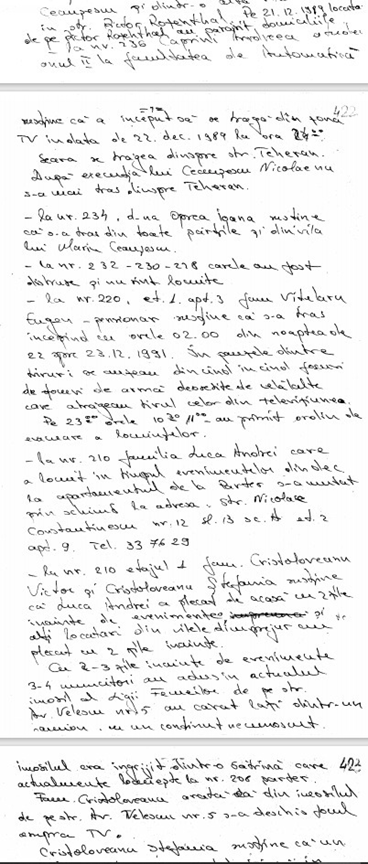 Ceaușescu și dintr-o altă
în str. Pictor Rosenthal. Pe 21.12.1989 locatarii
de pe pictor Rosenthal au părăsit domiciliile
La nr. 236 Caprini Andreea student
anul II la facultatea de Automatică
422
susține că a început să se tragă din zona
TV în data de 22. dec. 1989 la ora
Seara se trăgea dinspre str. Teheran.
După execuția lui Ceaușescu Nicolae nu
s-a mai tras dinspre Teheran.
- La nr. 234, d-na Oprea Ioana susține
că s-a tras din toate părțile și din vila
lui Marin Ceaușescu.
- La nr. 232 - 230 - 218 casele au fost
distruse și nu sînt locuite
- La nr. 220, et. 1, apt. 3 fam Vitelaru
Eugen - pensionar susține că s-a tras
începînd cu orele 02.00 din noaptea de
22 spre 23.12.1991. În pauzele dintre
tiruri se auzeau din cînd în cînd focuri
de focuri de armă deosebite de celelalte
care atrăgeau tirul celor din televiziunea.
Pe 23 orele 10 11 au primit ordin de
evacuare a locuințelor.
- La nr. 210 familia Luca Andrei care
a locuit în timpul evenimentelor din dec.
la apartamentul de la Parter s-a mutat
prin schimb la adresa: Str. Nicolae
Constantinescu nr. 12 bl. 13 sc. A et. 2
apt. 9. Tel. 33 76 29
- La nr. 210 etajul 1 fam. Cristoloveanu
Victor și Cristoloveanu Ștefania susține
că Luca Andrei a plecat de acasă cu 2 zile
înainte de evenimente și
alți locatari din vilele dimprejur au
plecat cu 2 zile înainte.
Cu 2-3 zile înainte de evenimente
3-4 muncitori au adus în actualul
imobil al Ligii Femeilor de pe str.
Av. Velescu nr. 5 au cărat lăzi dintr-un
camion, cu un conținut necunoscut.
imobilul era îngrijit dintr-o care 423
actualmente locuiește la nr. 208 parter.
Fam. Cristoloveanu arată că din imobilul
de pe str. Av. Velescu nr. 5 s-a deschis focul
asupra TV.
Cristoloveanu Ștefania susține că un